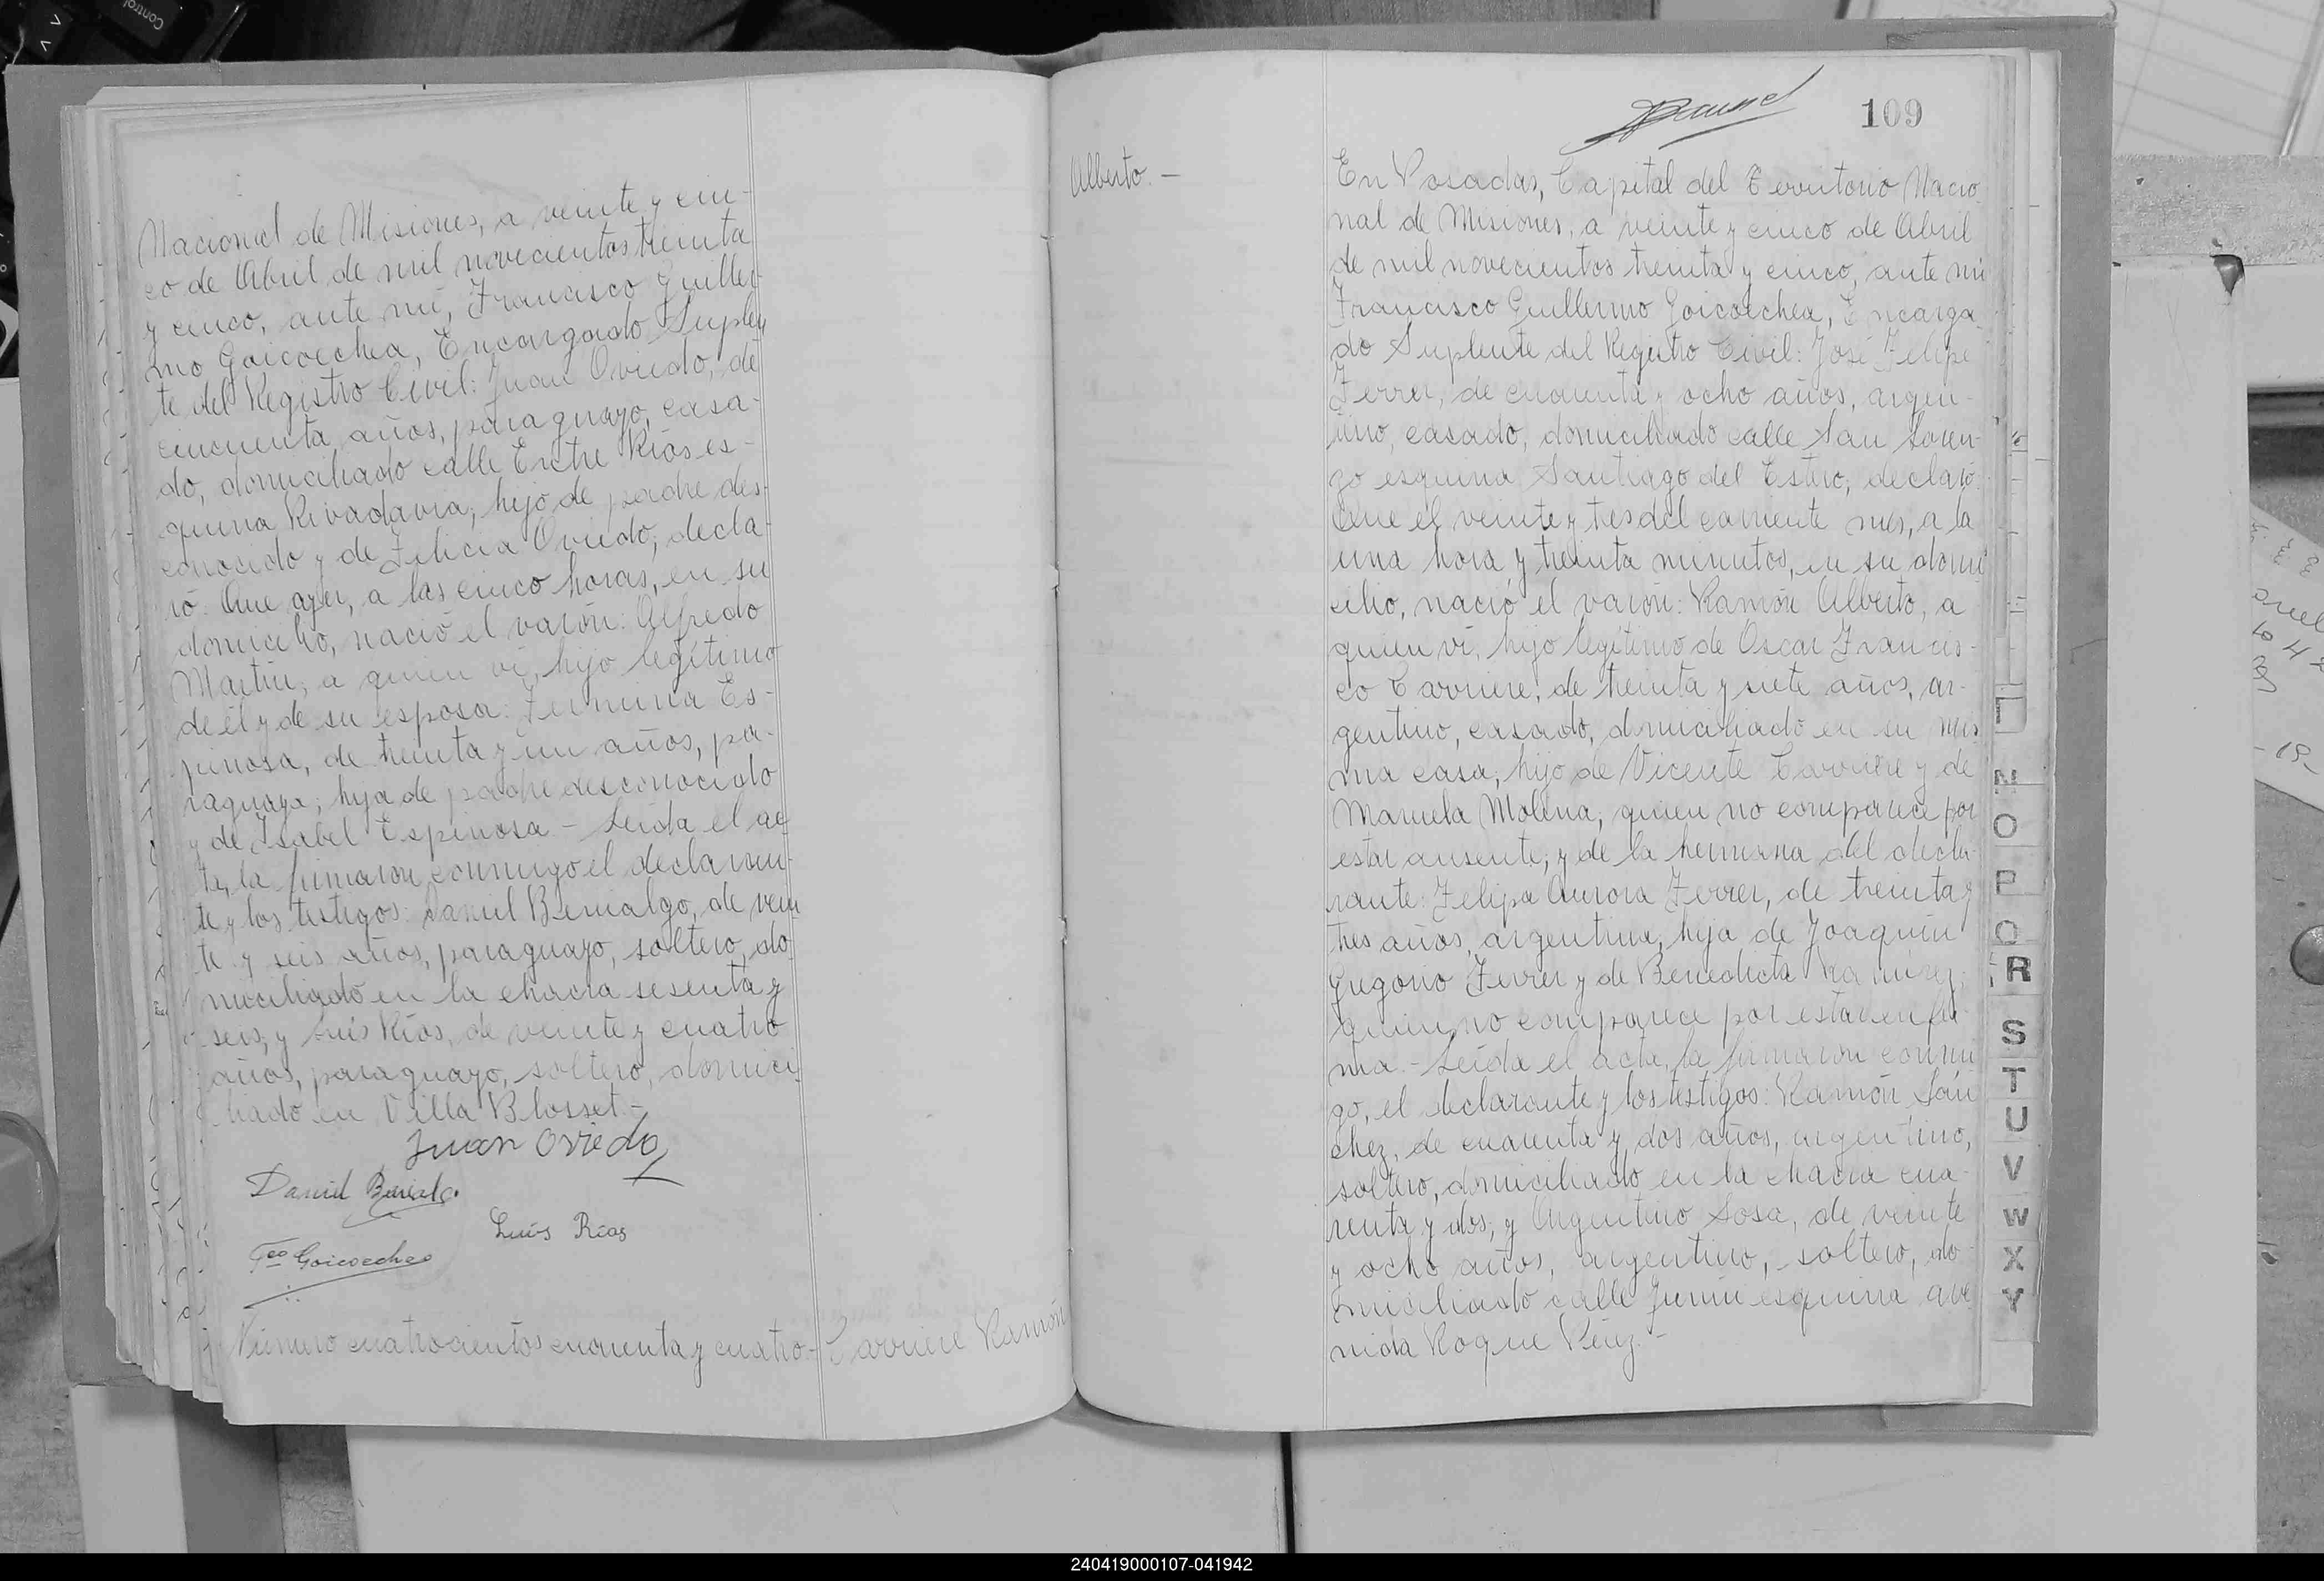 Nacional de Misiones, a veinte y cin-
co de Abril de mil novecientos treinta
y cinco, ante mí, Francisco Guiller-
mo Goicoechea, Encargado Suplen
te del Registro Civil: Juan Oviedo, de
cincuenta años, paraguayo, casa-
do, domiciliado calle Entre Ríos es-
quina Rivadavia; hijo de padre des-
conocido y de Felicia Oviedo; decla-
ró: Que ayer, a las cinco horas, en su
domicilio, nació el varón: Alfredo
Martín; a quien ví, hijo legítimo
de él y de su esposa: Fermina Es-
pinosa, de treinta y un años, pa-
raguaya; hija de padre desconocido
y de Isabel Espinosa - Leída el ac
ta, la firmaron conmigo el declaran-
te y los testigos: Daniel Benialgo, de vein
te y seis años, paraguayo, soltero, do-
miciliado en la chacra sesenta y
seis, y Luís Ríos, de veinte y cuatro
años, paraguayo, soltero, domici-
liado en Villa Blosset.-
Juan Oviedo
Daniel Benialgo.
Luís Ríos
Fco Goicoechea
Número cuatrocientos cuarenta y cuatro.- Carriere Ramón
Alberto.-
109
En Posadas, Capital del Territorio Nacio
nal de Misiones, a veinte y cinco de Abril
de mil novecientos treinta y cinco, ante mí
Francisco Guillermo Goicoechea, Encarga
do Suplente del Registro Civil: José Felipe
Ferrer, de cuarenta y ocho años, argen-
tino, casado, domiciliado calle San Loren-
zo esquina Santiago del Estero, declaró:
Que el veinte y tres del corriente mes, a la
una hora y treinta minutos, en su domi
cilio, nació el varón: Ramón Alberto, a
quien ví, hijo legítimo de Oscar Francis-
co Carriere, de treinta y siete años, ar-
gentino, casado, domiciliado en su mis
ma casa; hijo de Vicente Carriere y de
Manuela Molina; quien no comparece por
estar ausente; y de la hermana del decla-
rante: Felipa Aurora Ferrer, de treinta y
tres años, argentina, hija de Joaquín
Gregorio Ferrer y de Benedicta Ramírez;
quien no comparece por estar enfer
ma.- Leída el acta, la firmaron conmi
go, el declarante y los testigos: Ramón Sán
chez, de cuarenta y dos años, argentino,
soltero, domiciliado en la chacra cua-
renta y dos; y Argentino Sosa, de veinte
y ocho años, argentino, soltero, do-
miciliado calle Junín esquina ave
nida Roque Pérez.-
N
O
P
Q
R
S
T
U
V
W
X
Y
Control
240419000107-041942